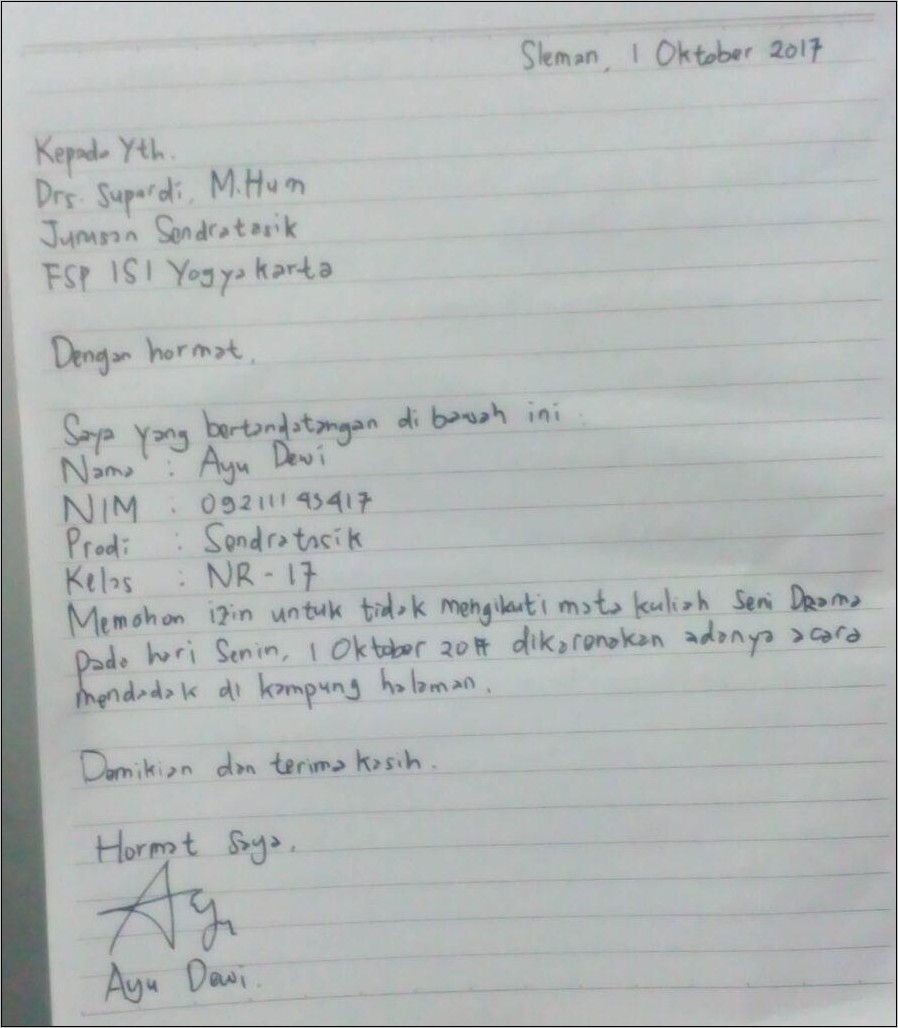 Sleman, 1 Oktober 2017
Kepada Yth.
Drs. Supardi, M.Hum
Jurusan Sendratasik
FSP ISI Yogyakarta
Dengan hormat,
Saya yang bertandatangan di bawah ini :
Nama : Ayu Dewi
NIM : 09211193417
Prodi : Sendratasik
Kelas : NR - 17
Memohon izin untuk tidak mengikuti mata kuliah Seni Drama
pada hari Senin, 1 Oktober 2017 dikarenakan adanya acara
mendadak di kampung halaman.
Demikian dan terima kasih.
Hormat Saya,
Ayu
Ayu Dewi.